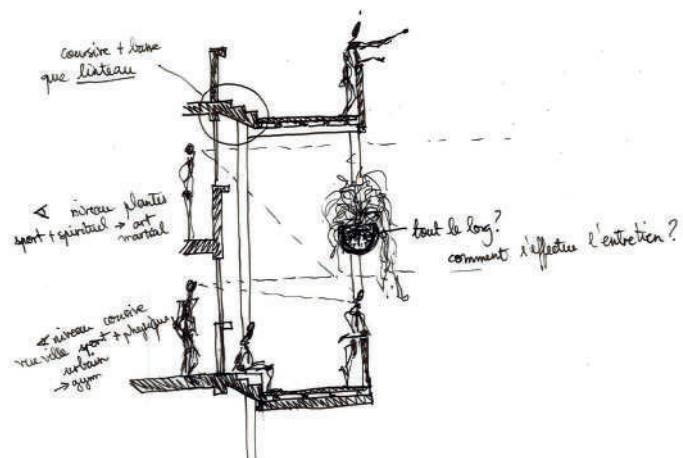 coursive + basse
que linteau
∢ niveau plantes
sport + spirituel → art
martial
tout le long?
comment s'effectue l'entretien?
∢ niveau coursive
vue ville sport + physique
urbain
→ gym